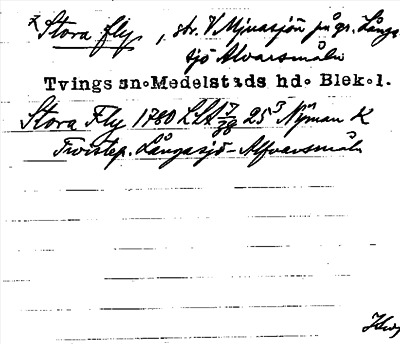 x Stora fly, str. V Mjuasjön på gr. Långa-
sjö Alvarsmåla
Tvings sn. Medelstads hd. Blek. l.
Stora Fly 1780 LSA 7/28 25³ Nyman K
Tvistep. Långasjö - Alfvarsmåla